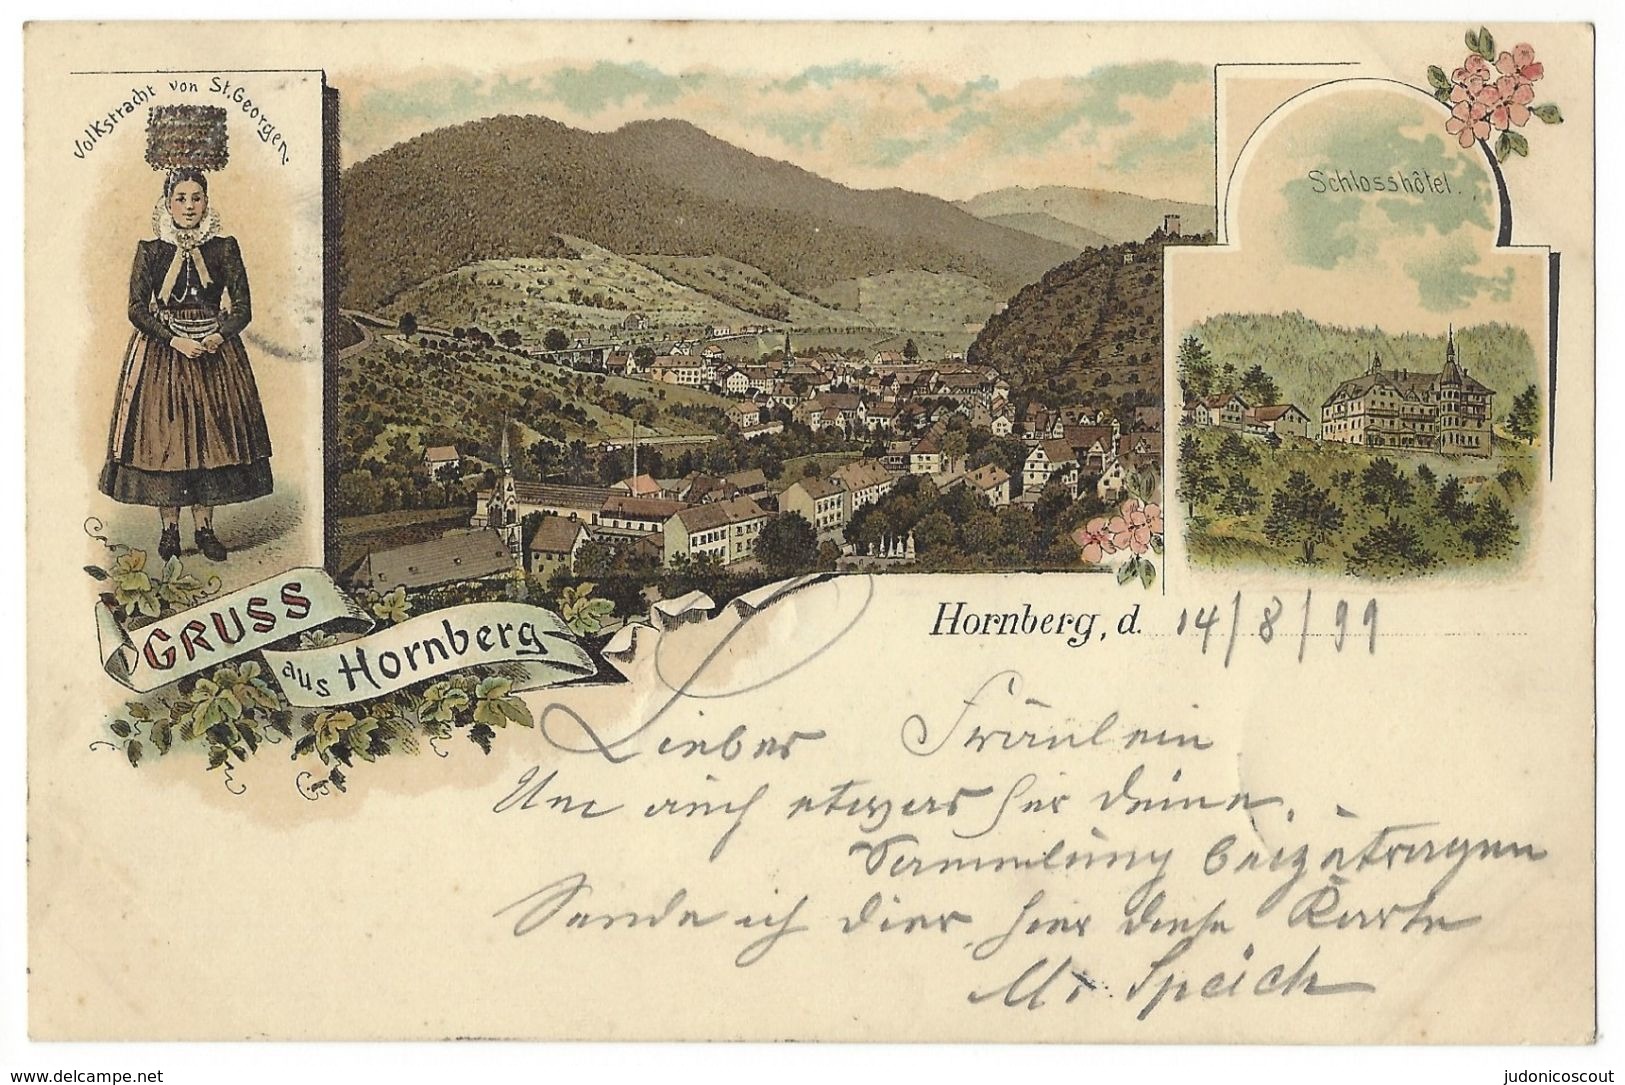 Volkstracht von St. Georgen.
Schlosshôtel.
GRUSS
aus Hornberg
Hornberg, d. 14/8/99
Lieber Fräulein
Um auch etwas für deine
Sammlung beizutragen
Sende ich dier hier diese Karte
M. Speich
delcampe.net
judonicoscout